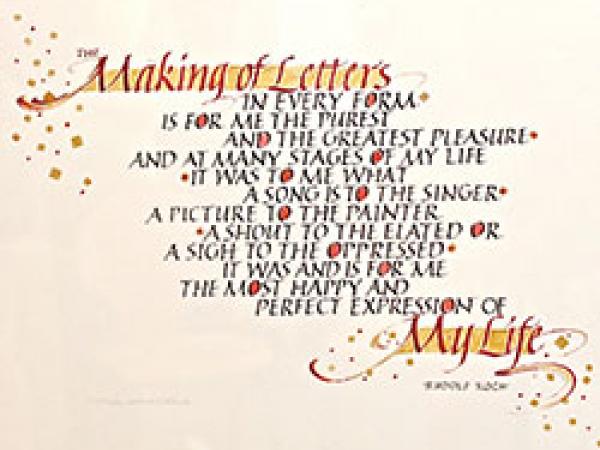 THE
Making of Letters
IN EVERY FORM
IS FOR ME THE PUREST
AND THE GREATEST PLEASURE
AND AT MANY STAGES OF MY LIFE
IT WAS TO ME WHAT
A SONG IS TO THE SINGER
A PICTURE TO THE PAINTER
A SHOUT TO THE ELATED OR
A SIGH TO THE OPPRESSED
IT WAS AND IS FOR ME
THE MOST HAPPY AND
PERFECT EXPRESSION OF
My Life
RUDOLF KOCH